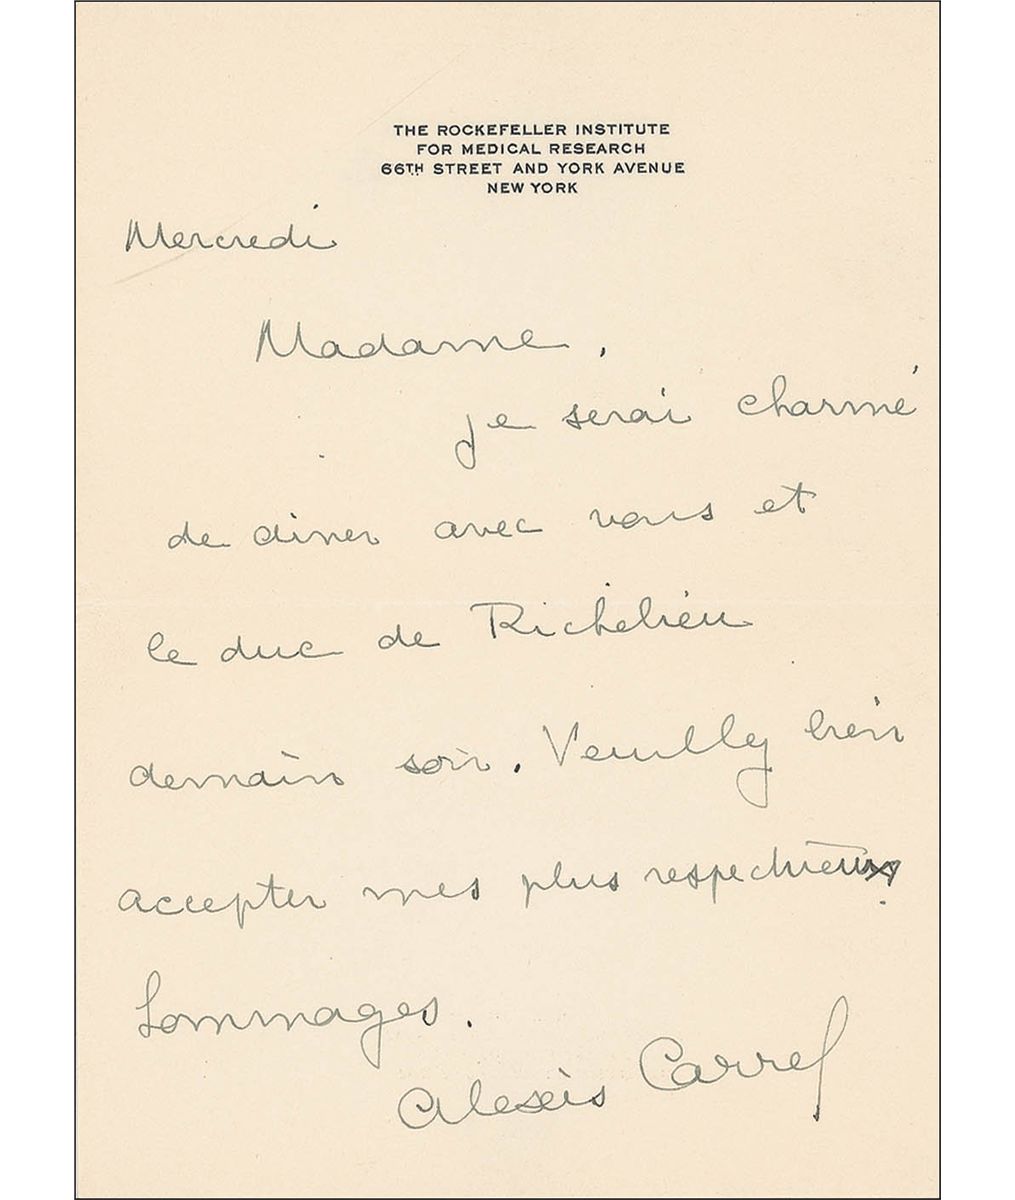 THE ROCKEFELLER INSTITUTE
FOR MEDICAL RESEARCH
66TH STREET AND YORK AVENUE
NEW YORK
Mercredi
Madame,
je serai charmé
de diner avec vous et
le duc de Richelieu
demain soir. Veuilly bien
accepter mes plus respectueux
hommages.
Alexis Carrel